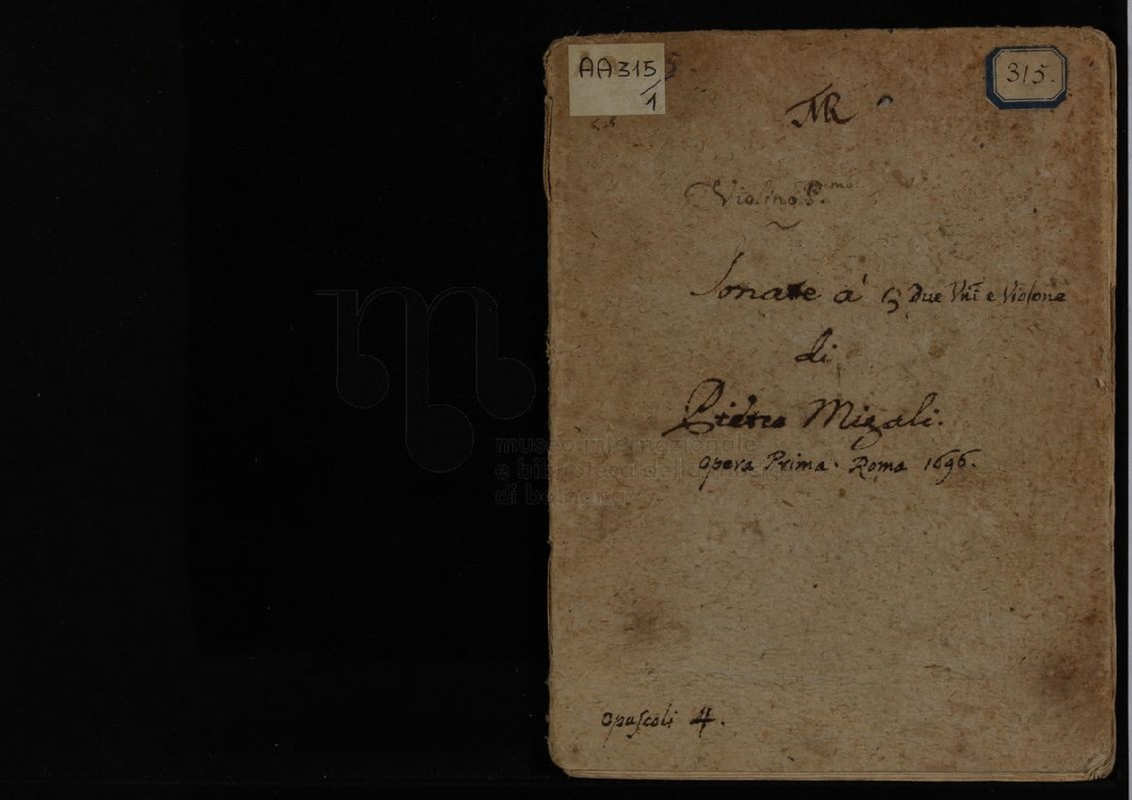 AA315
/1
315.
MR
Violino P.mo
Sonate à 3 Due Vni e Violone
di
Pietro Migali.
opera Prima. Roma 1696.
museo internazionale
e biblioteca della
di bologna
opuscoli 4.